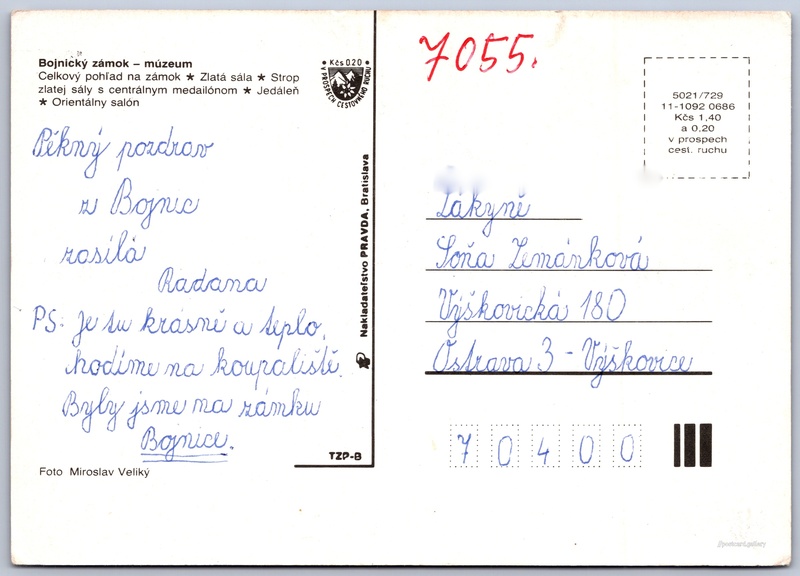 Bojnický zámok – múzeum
Celkový pohľad na zámok ★ Zlatá sála ★ Strop
zlatej sály s centrálnym medailónom ★ Jedáleň
★ Orientálny salón
Kčs 0.20
V PROSPECH CESTOVNÉHO RUCHU
Pěkný pozdrav
z Bojnic
zasílá
Radana
PS: je tu krásně a teplo,
hodíme na koupaliště.
Byly jsme na zámku
Bojnice.
Foto Miroslav Veliký
TZP-B
Nakladateľstvo PRAVDA, Bratislava
7055.
5021/729
11-1092 0686
Kčs 1,40
a 0.20
v prospech
cest. ruchu
Žákyně
Soňa Zemánková
Výškovická 180
Ostrava 3 - Výškovice
7 0 4 0 0